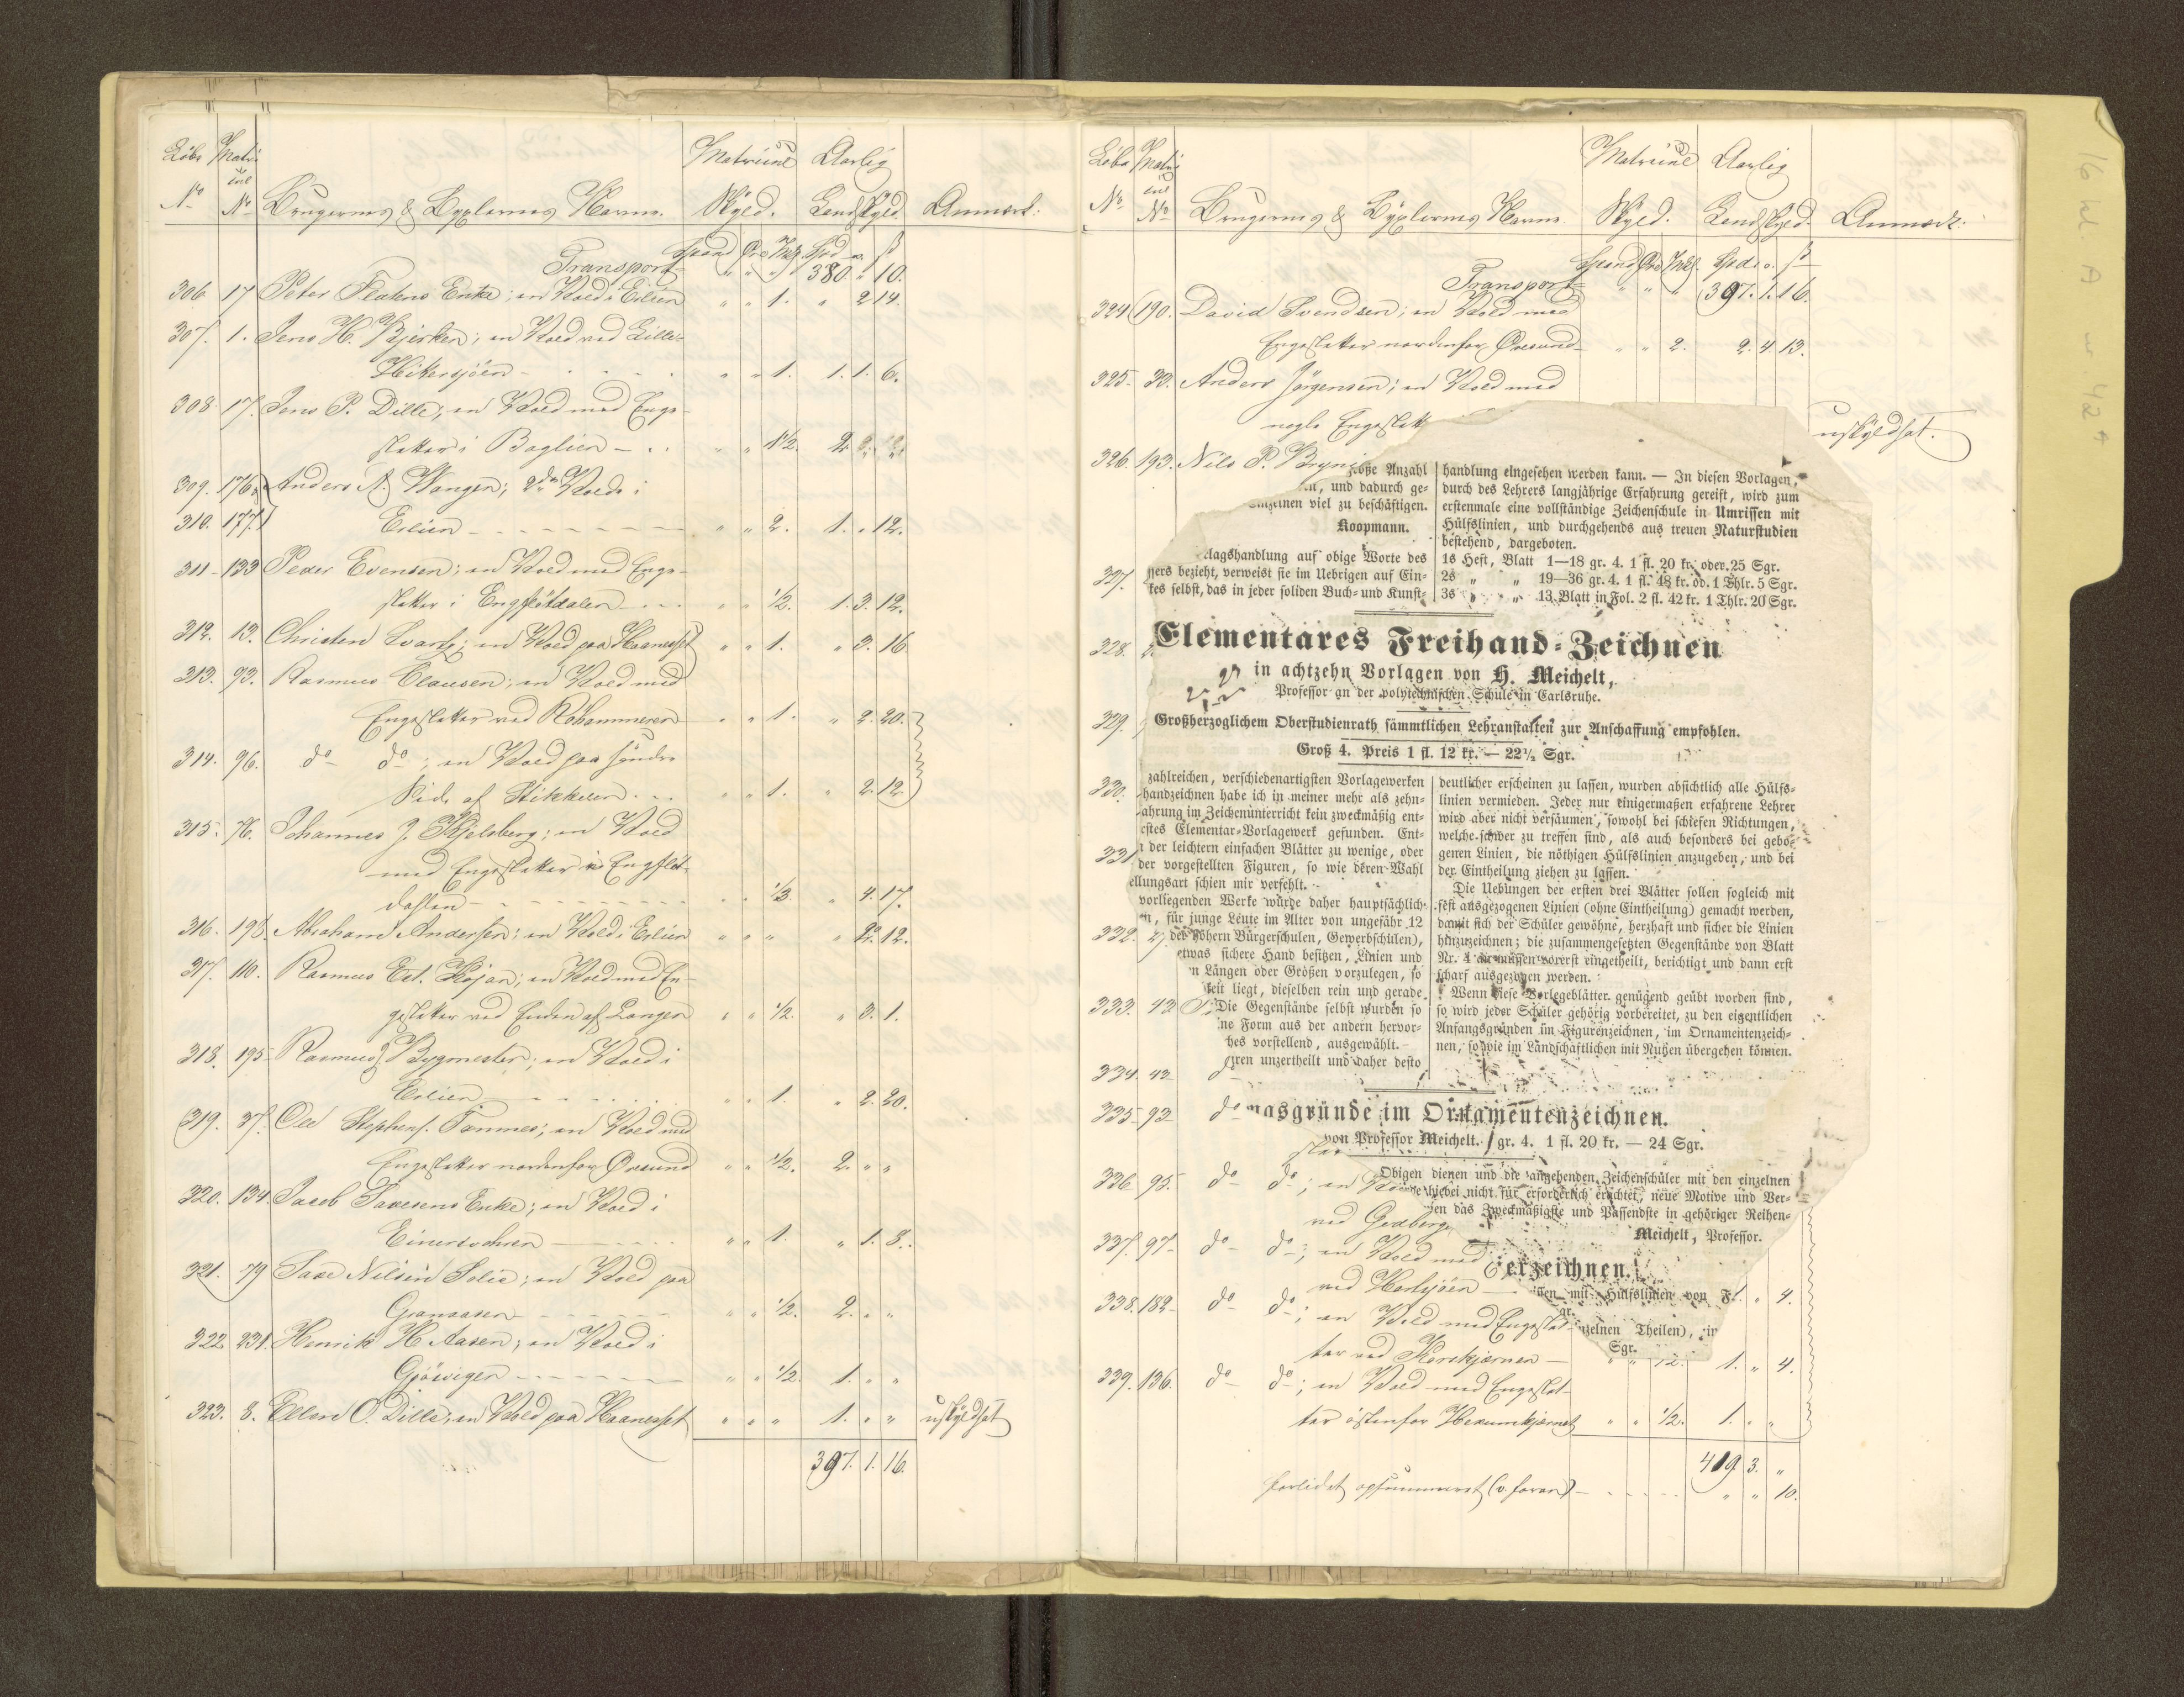 Løbe Matri Matricul Aarlig
No cul No Brugernes & Byxlernes Navne. Skyld. Landskyld Anmærk:
Spand Øre Mkl Spd o. ß
Transport " " " 380 " 10.
306 17 Peter Flatens Enke; en Vold i Erlien " " 1. " 2 14.
307. 1. Jens H. Bjerken; en Vold ved Lille-
Hitersjöen - " " 1. 1. 1. 6.
308 17. Jens P. Dille; en Vold med Enge-
sletter i Baglien - " " 1 1/2. 2.
309. 176 Anders A. Wangen; 2de Volde i
310. 177. Erlien - " " 2. 1. " 12.
311 - 133 Peder Evensen; en Vold med Enge-
sletter i Engfletdalen " " 1/2. 1. 3. 12.
312. 13. Christen Svartz; en Vold paa Haaneset " " 1. " 3. 16
313. 93. Rasmus Clausen; en Vold med
Engesletter ved Røhammeren " " 1. " 2. 20.
314. 96. do do; en Vold paa söndre
Side af Stikkilen " " 1. " 2. 12.
315. 76. Johannes J. Kjelsberg; en Vold
med Engesletter i Engflet-
dahlen - " " 1/3. " 4. 17.
316. 198. Abraham Andersen; en Vold i Erlien " " " " 2. 12.
317. 110. Rasmus Ert. Kojan; en Vold med En-
gesletter ved Enden af Langen " " 1/2. " 3. 1.
318. 195 Rasmus Bygmester; en Vold i
Erlien " " 1. " 2. 20.
319. 37. Ole Stephens. Tamnes; en Vold med
Engesletter nordenfor Øresund " " 1/2. 2. " "
320. 134. Jacob Saxesens Enke; en Vold i
Einertrohren " " 1. " 1. 8.
321. 79 Saxe Nilsen Solie; en Vold paa
Gransaasen " " 1/2. 2. " "
322 231. Henrik H. Aasen; en Vold i
Gjösvigen " " 1/2. 1. " "
323. 8. Ellen O. Dille; en Vold paa Haaneset " " " 1. " " uskyldsat
397. 1. 16.
Løbe Matri Matricul Aarlig
No cul No Brugernes & Byxlernes Navne. Skyld. Landskyld. Anmærk:
Spand Øre Mkl. Spd o. ß
Transport " " " 397. 1. 16.
324 190. David Svendsen; en Vold med
Engesletter nordenfor Øresund " " 2. 2. 4 13.
325. 33. Anders Jörgensen; en Vold med
nogle Engeslett uskyldsat.
326. 193. Nils P. Bryni
327.
328.
329.
330.
331
332. 2
333. 42
334. 42
335 - 93 do
336 95. do do; en
ved Gudberg
337. 97 - do do; en Vold med
ved Harsjöen
338. 182 - do do; en Vold med Engeslet- 1. " 4.
ter ved Korskjernen - " " 1/2. 1. " 4.
339. 136. do do; en Vold med Engeslet-
ter östenfor Hexumkjernet " " 1/2. 1. " "
419 3. "
forlidet opsummeret (v. foran) - " " 10.
große Anzahl
, und dadurch ge-
einzelnen viel zu beschäftigen.
Koopmann.
lagshandlung auf obige Worte des
sers bezieht, verweist sie im Uebrigen auf Ein-
kes selbst, das in jeder soliden Buch- und Kunst-
handlung eingesehen werden kann. — In diesen Vorlagen,
durch des Lehrers langjährige Erfahrung gereift, wird zum
erstenmale eine vollständige Zeichenschule in Umrissen mit
Hülfslinien, und durchgehends aus treuen Naturstudien
bestehend, dargeboten.
1s Heft, Blatt 1—18 gr. 4. 1 fl. 20 kr. oder 25 Sgr.
2s " " 19—36 gr. 4. 1 fl. 48 kr. od. 1 Thlr. 5 Sgr.
3s " " 13 Blatt in Fol. 2 fl. 42 kr. 1 Thlr. 20 Sgr.
Elementares Freihand-Zeichnen
in achtzehn Vorlagen von H. Meichelt,
Professor an der polytechnischen Schule in Carlsruhe.
Großherzoglichem Oberstudienrath sämmtlichen Lehranstalten zur Anschaffung empfohlen.
Groß 4. Preis 1 fl. 12 kr. — 22 1/2 Sgr.
zahlreichen, verschiedenartigsten Vorlagewerken
handzeichnen habe ich in meiner mehr als zehn-
ahrung im Zeichenunterricht kein zweckmäßig ent-
estes Elementar-Vorlagewerk gefunden. Ent-
n der leichtern einfachen Blätter zu wenige, oder
der vorgestellten Figuren, so wie deren Wahl
ellungsart schien mir verfehlt.
vorliegenden Werke wurde daher hauptsächlich
n, für junge Leute im Alter von ungefähr 12
der höhern Bürgerschulen, Gewerbschulen),
etwas sichere Hand besitzen, Linien und
n Längen oder Größen vorzulegen, so
keit liegt, dieselben rein und gerade
Die Gegenstände selbst wurden so
ine Form aus der andern hervor-
hes vorstellend, ausgewählt.
uren unzertheilt und daher desto
deutlicher erscheinen zu lassen, wurden absichtlich alle Hülfs-
linien vermieden. Jeder nur einigermaßen erfahrene Lehrer
wird aber nicht versäumen, sowohl bei schiefen Richtungen,
welche schwer zu treffen sind, als auch besonders bei gebo-
genen Linien, die nöthigen Hülfslinien anzugeben, und bei
der Eintheilung ziehen zu lassen.
Die Uebungen der ersten drei Blätter sollen sogleich mit
fest ausgezogenen Linien (ohne Eintheilung) gemacht werden,
damit sich der Schüler gewöhne, herzhaft und sicher die Linien
hinzuzeichnen; die zusammengesetzten Gegenstände von Blatt
Nr. 4 an müssen vorerst eingetheilt, berichtigt und dann erst
scharf ausgezogen werden.
Wenn diese Vorlegeblätter genügend geübt worden sind,
so wird jeder Schüler gehörig vorbereitet, zu den eigentlichen
Anfangsgründen im Figurenzeichnen, im Ornamentenzeich-
nen, sowie im Landschaftlichen mit Nutzen übergehen können.
ngsgründe im Ornamentenzeichnen.
von Professor Meichelt. gr. 4. 1 fl. 20 kr. — 24 Sgr.
Obigen dienen und die angehenden Zeichenschüler mit den einzelnen
hiebei nicht für erforderlich erachtet, neue Motive und Ver-
gen das Zweckmäßigste und Passendste in gehöriger Reihen-
Meichelt, Professor.
erzeichnen.
mit Hülfslinien von F.
gr.
nzelnen Theilen), in
Sgr.
16 kl. A nr. 42 +